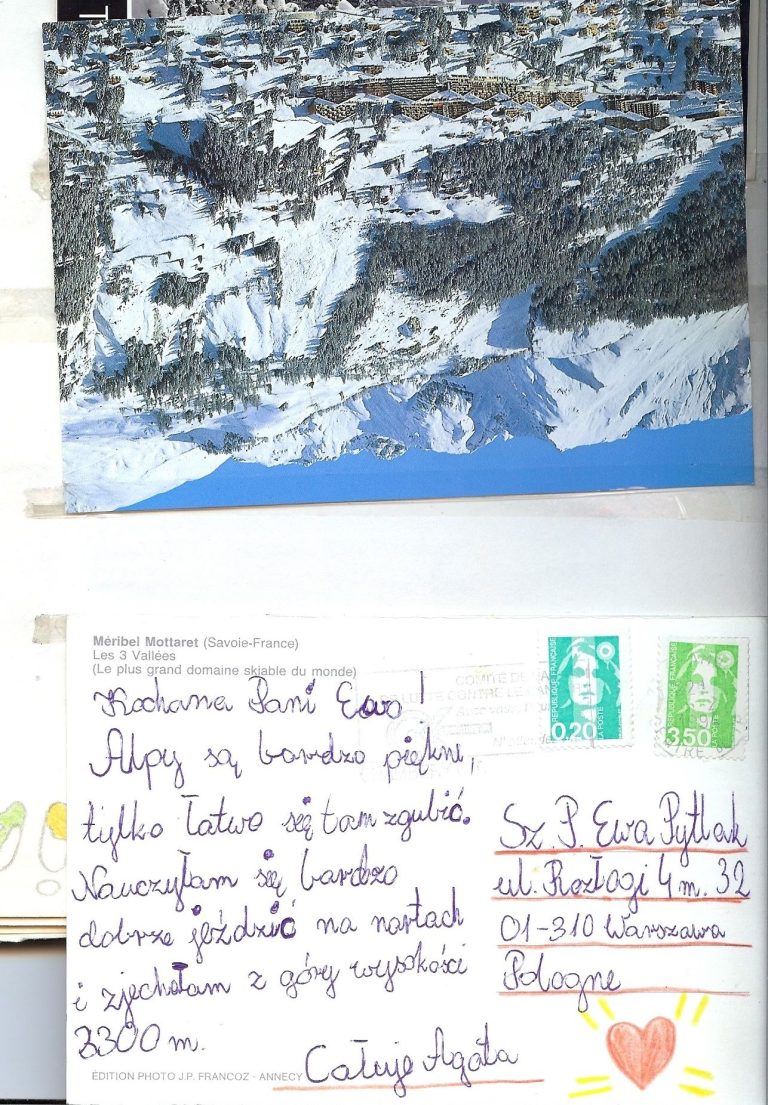 Méribel Mottaret (Savoie-France)
Les 3 Vallées
(Le plus grand domaine skiable du monde)
Kochana Pani Ewo!
Alpy są bardzo piękne,
tylko łatwo się tam zgubić.
Nauczyłam się bardzo
dobrze jeździć na nartach
i zjechałam z góry wysokości
3300 m.
Całuję Agata
ÉDITION PHOTO J.P. FRANCOZ - ANNECY
RÉPUBLIQUE FRANÇAISE
0,20
LA POSTE
RÉPUBLIQUE FRANÇAISE
3,50
LA POSTE
COMITÉ DE
LUTTE CONTRE LE
Sz. P. Ewa Pytlak
ul. Rozłogi 4 m. 32
01-310 Warszawa
Pologne